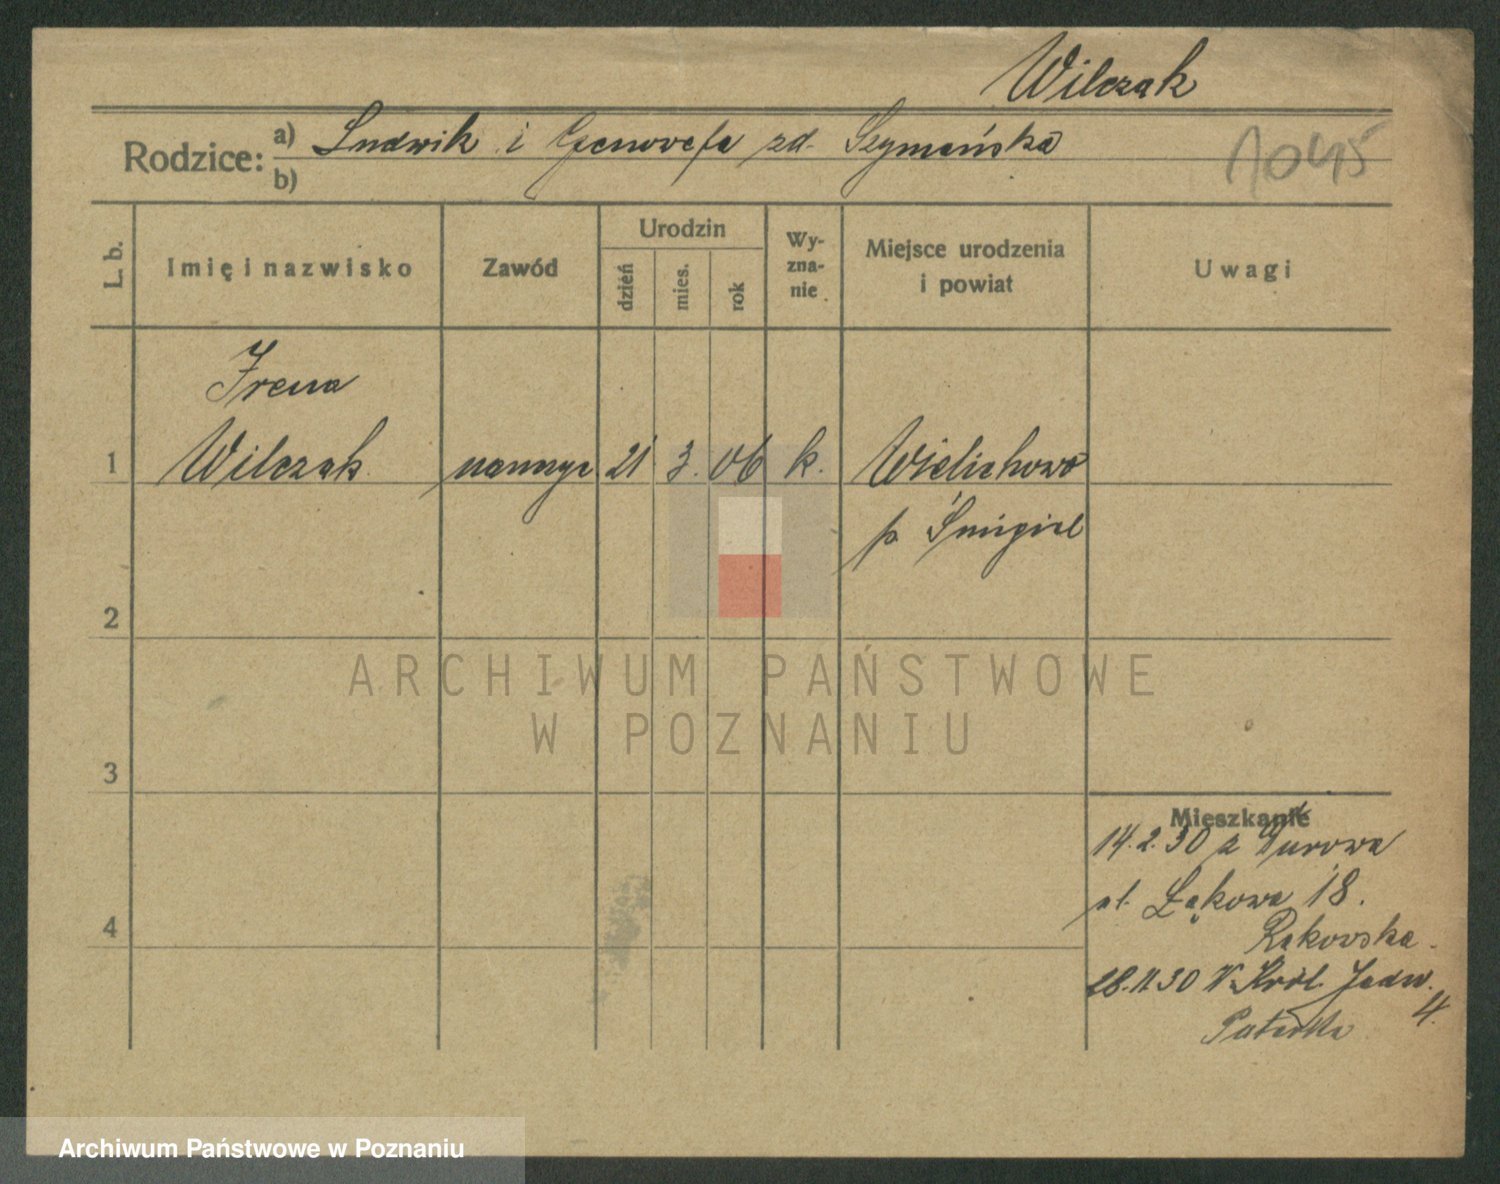 Wilczak
Rodzice: a) Ludwik i Genowefa zd. Szymańska
b)
1045
L. b.
Imię i nazwisko
Zawód
Urodzin
dzień
mies.
rok
Wy-
zna-
nie
Miejsce urodzenia
i powiat
Uwagi
Irena
1 Wilczak 21 3. 06 k. Wielichowo
p. Śmigiel
2
ARCHIWUM PAŃSTWOWE
W POZNANIU
3
Mieszkanie
14.2.30 z Gurowa
ul. Łąkowa 18.
4
Rakowska.
28.11.30 W. Król. Jadw.
4.
Archiwum Państwowe w Poznaniu